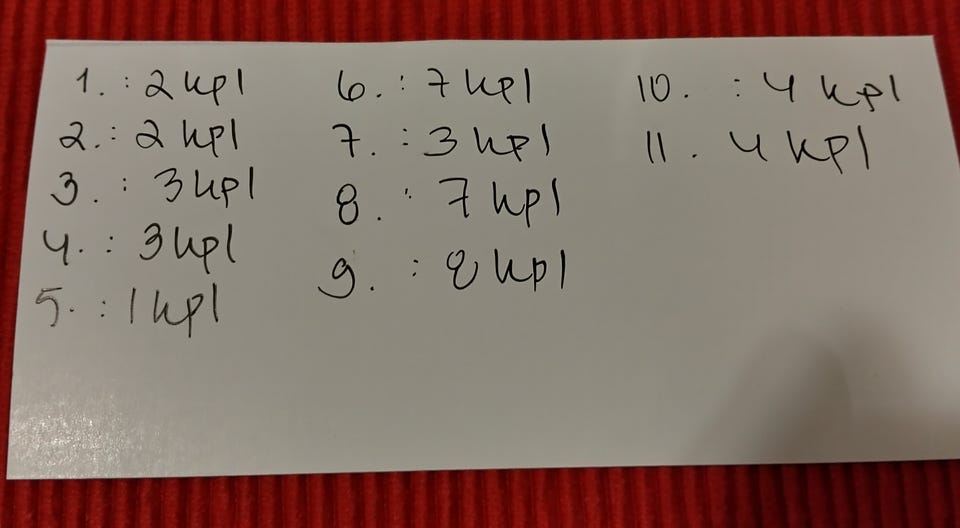 1. : 2 kpl
2. : 2 kpl
3. : 3 kpl
4. : 3 kpl
5. : 1 kpl
6. : 7 kpl
7. : 3 kpl
8. : 7 kpl
9. : 8 kpl
10. : 4 kpl
11. 4 kpl